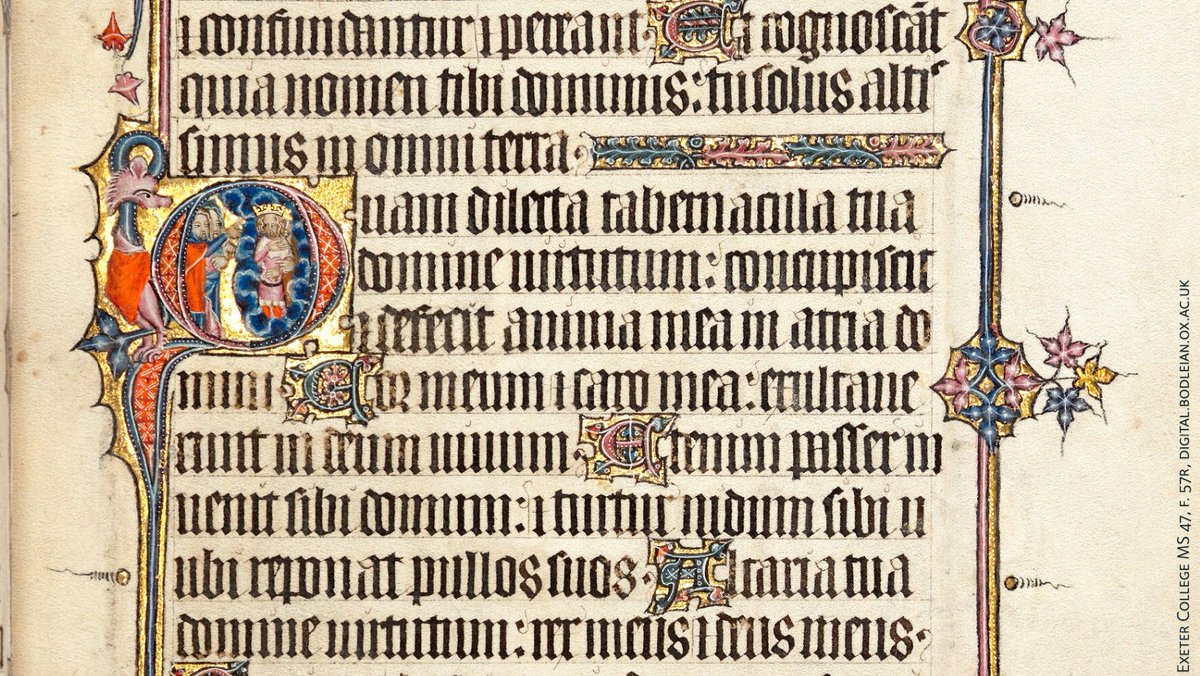 ⁊ confundantur ⁊ pereant Et cognoscāt
quia nomen tibi dominus: tu solus altis
simus in omni terra
Quam dilecta tabernacula tua
domine uirtutum: concupiscit
⁊ defecit anima mea in atria do
mini Cor meum ⁊ caro mea: exultaue
runt in deum uiuum Etenim passer in
uenit sibi domum: ⁊ turtur nidum sibi u
ubi reponat pullos suos. Altaria tua
domine uirtutum: rex meus ⁊ deus meus.
EXETER COLLEGE MS 47, F. 57R, DIGITAL.BODLEIAN.OX.AC.UK